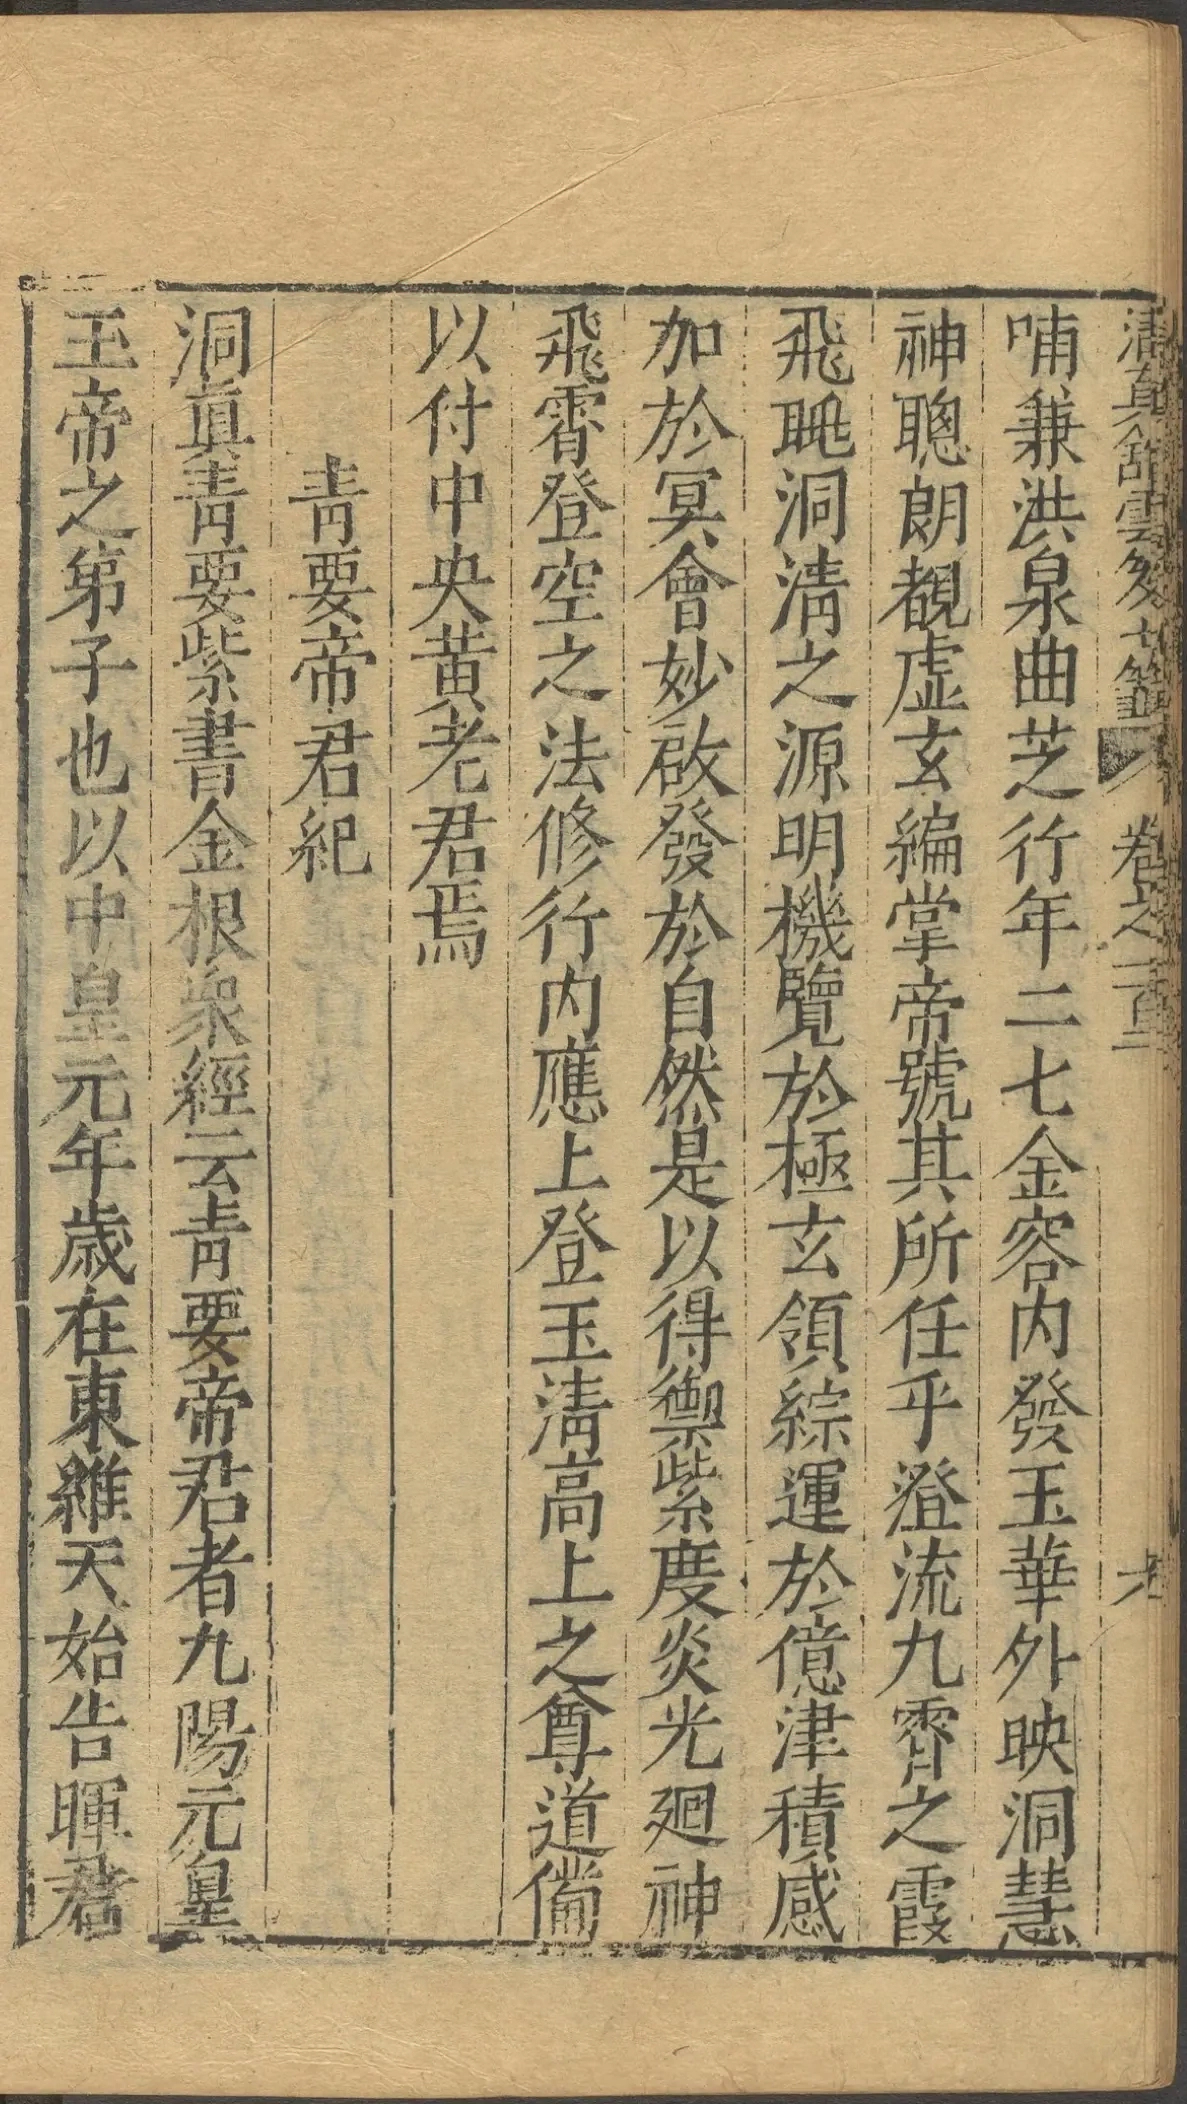 清真館雲笈七籖 卷之一百二
哺兼洪泉曲芝行年二七金容内發玉華外映洞慧
神聰朗覩虚玄編掌帝號其所任乎澄流九霄之霞
飛眺洞清之源明機覽於極玄領綜運於億津積感
加於冥會妙啟發於自然是以得禦紫度炎光廻神
飛霄登空之法修行内應上登玉清高上之尊道備
以付中央黄老君焉
青要帝君紀
洞眞青要紫書金根衆經云青要帝君者九陽元皇
玉帝之弟子也以中皇元年歲在東維天始告暉君